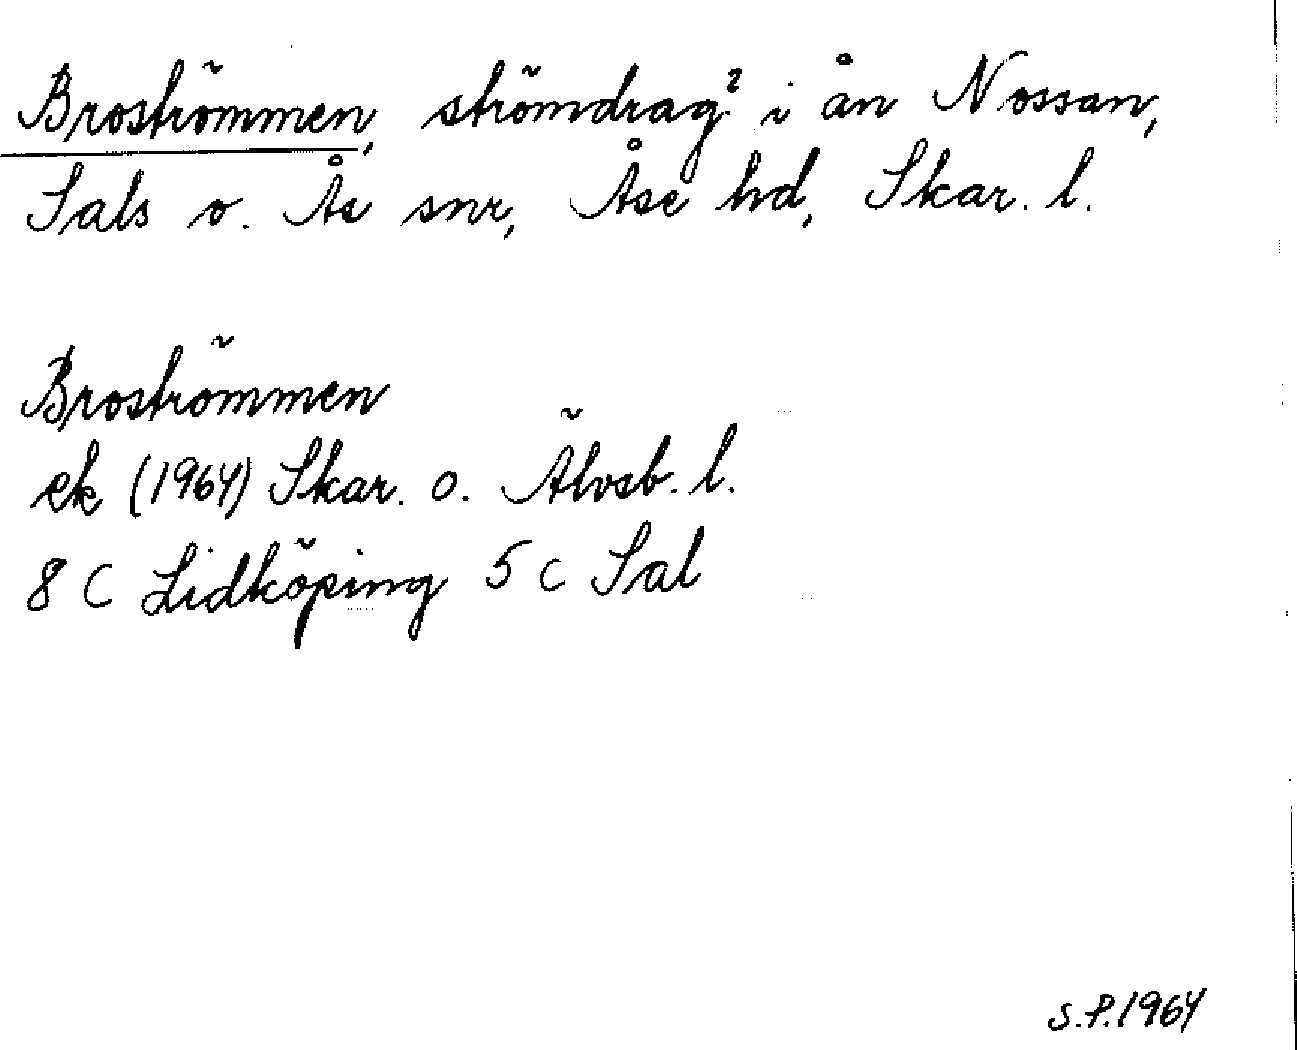 Broströmmen, strömdrag? i ån Nossan,
Sals o. Ås snr, Åse hd, Skar. l.
Broströmmen
ek (1964) Skar. o. Älvsb. l.
8 C Lidköping 5 c Sal
S.P. 1964